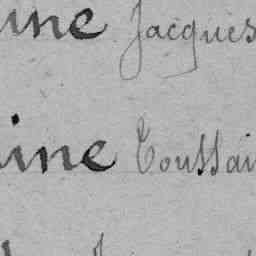 ine Jacques
ine Toussai